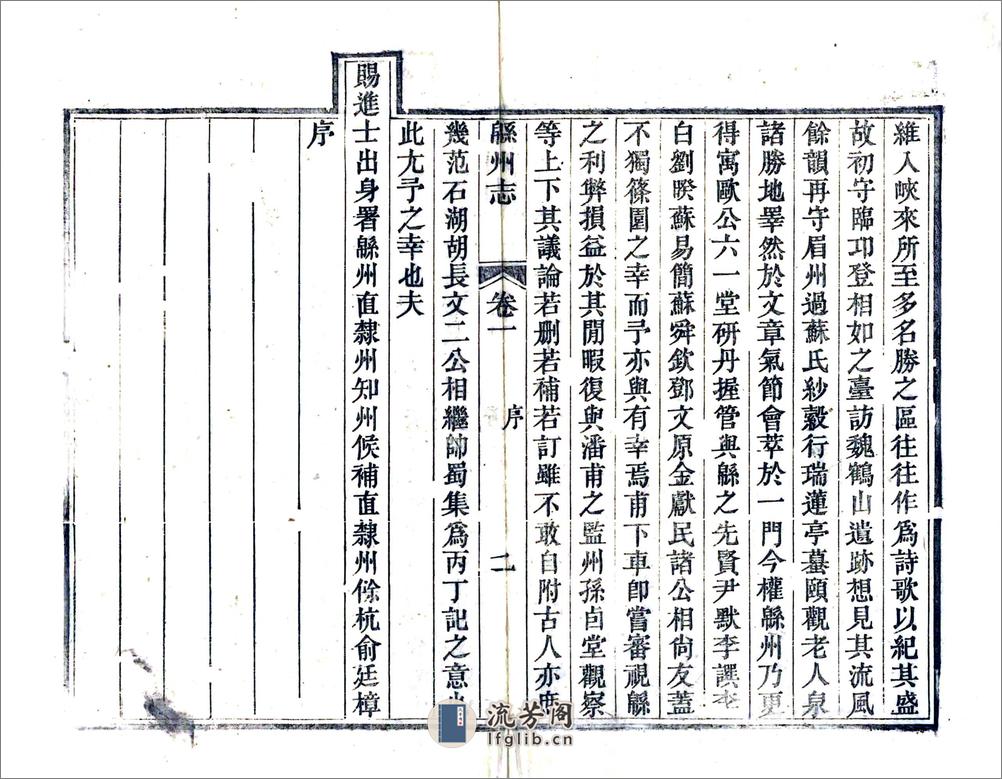 維入峽來所至多名勝之區往往作爲詩歌以紀其盛
故初守臨邛登相如之臺訪魏鶴山遺跡想見其流風
餘韻再守眉州過蘇氏紗縠行瑞蓮亭墓頤觀老人泉
諸勝地睪然於文章氣節會萃於一門今權緜州乃更
得寓歐公六一堂研丹握管與緜之先賢尹默李譔李
白劉暌蘇易簡蘇舜欽鄧文原金獻民諸公相尙友蓋
不獨篠園之幸而予亦與有幸焉甫下車卽嘗審視緜
之利弊損益於其閒暇復與潘甫之監州孫卣堂觀察
等上下其議論若刪若補若訂雖不敢自附古人亦庶
緜州志
卷一
序
二
幾范石湖胡長文二公相繼帥蜀集爲丙丁記之意
此尤予之幸也夫
賜進士出身署緜州直隸州知州候補直隸州餘杭俞廷樟
序
流芳阁
lfglib.cn